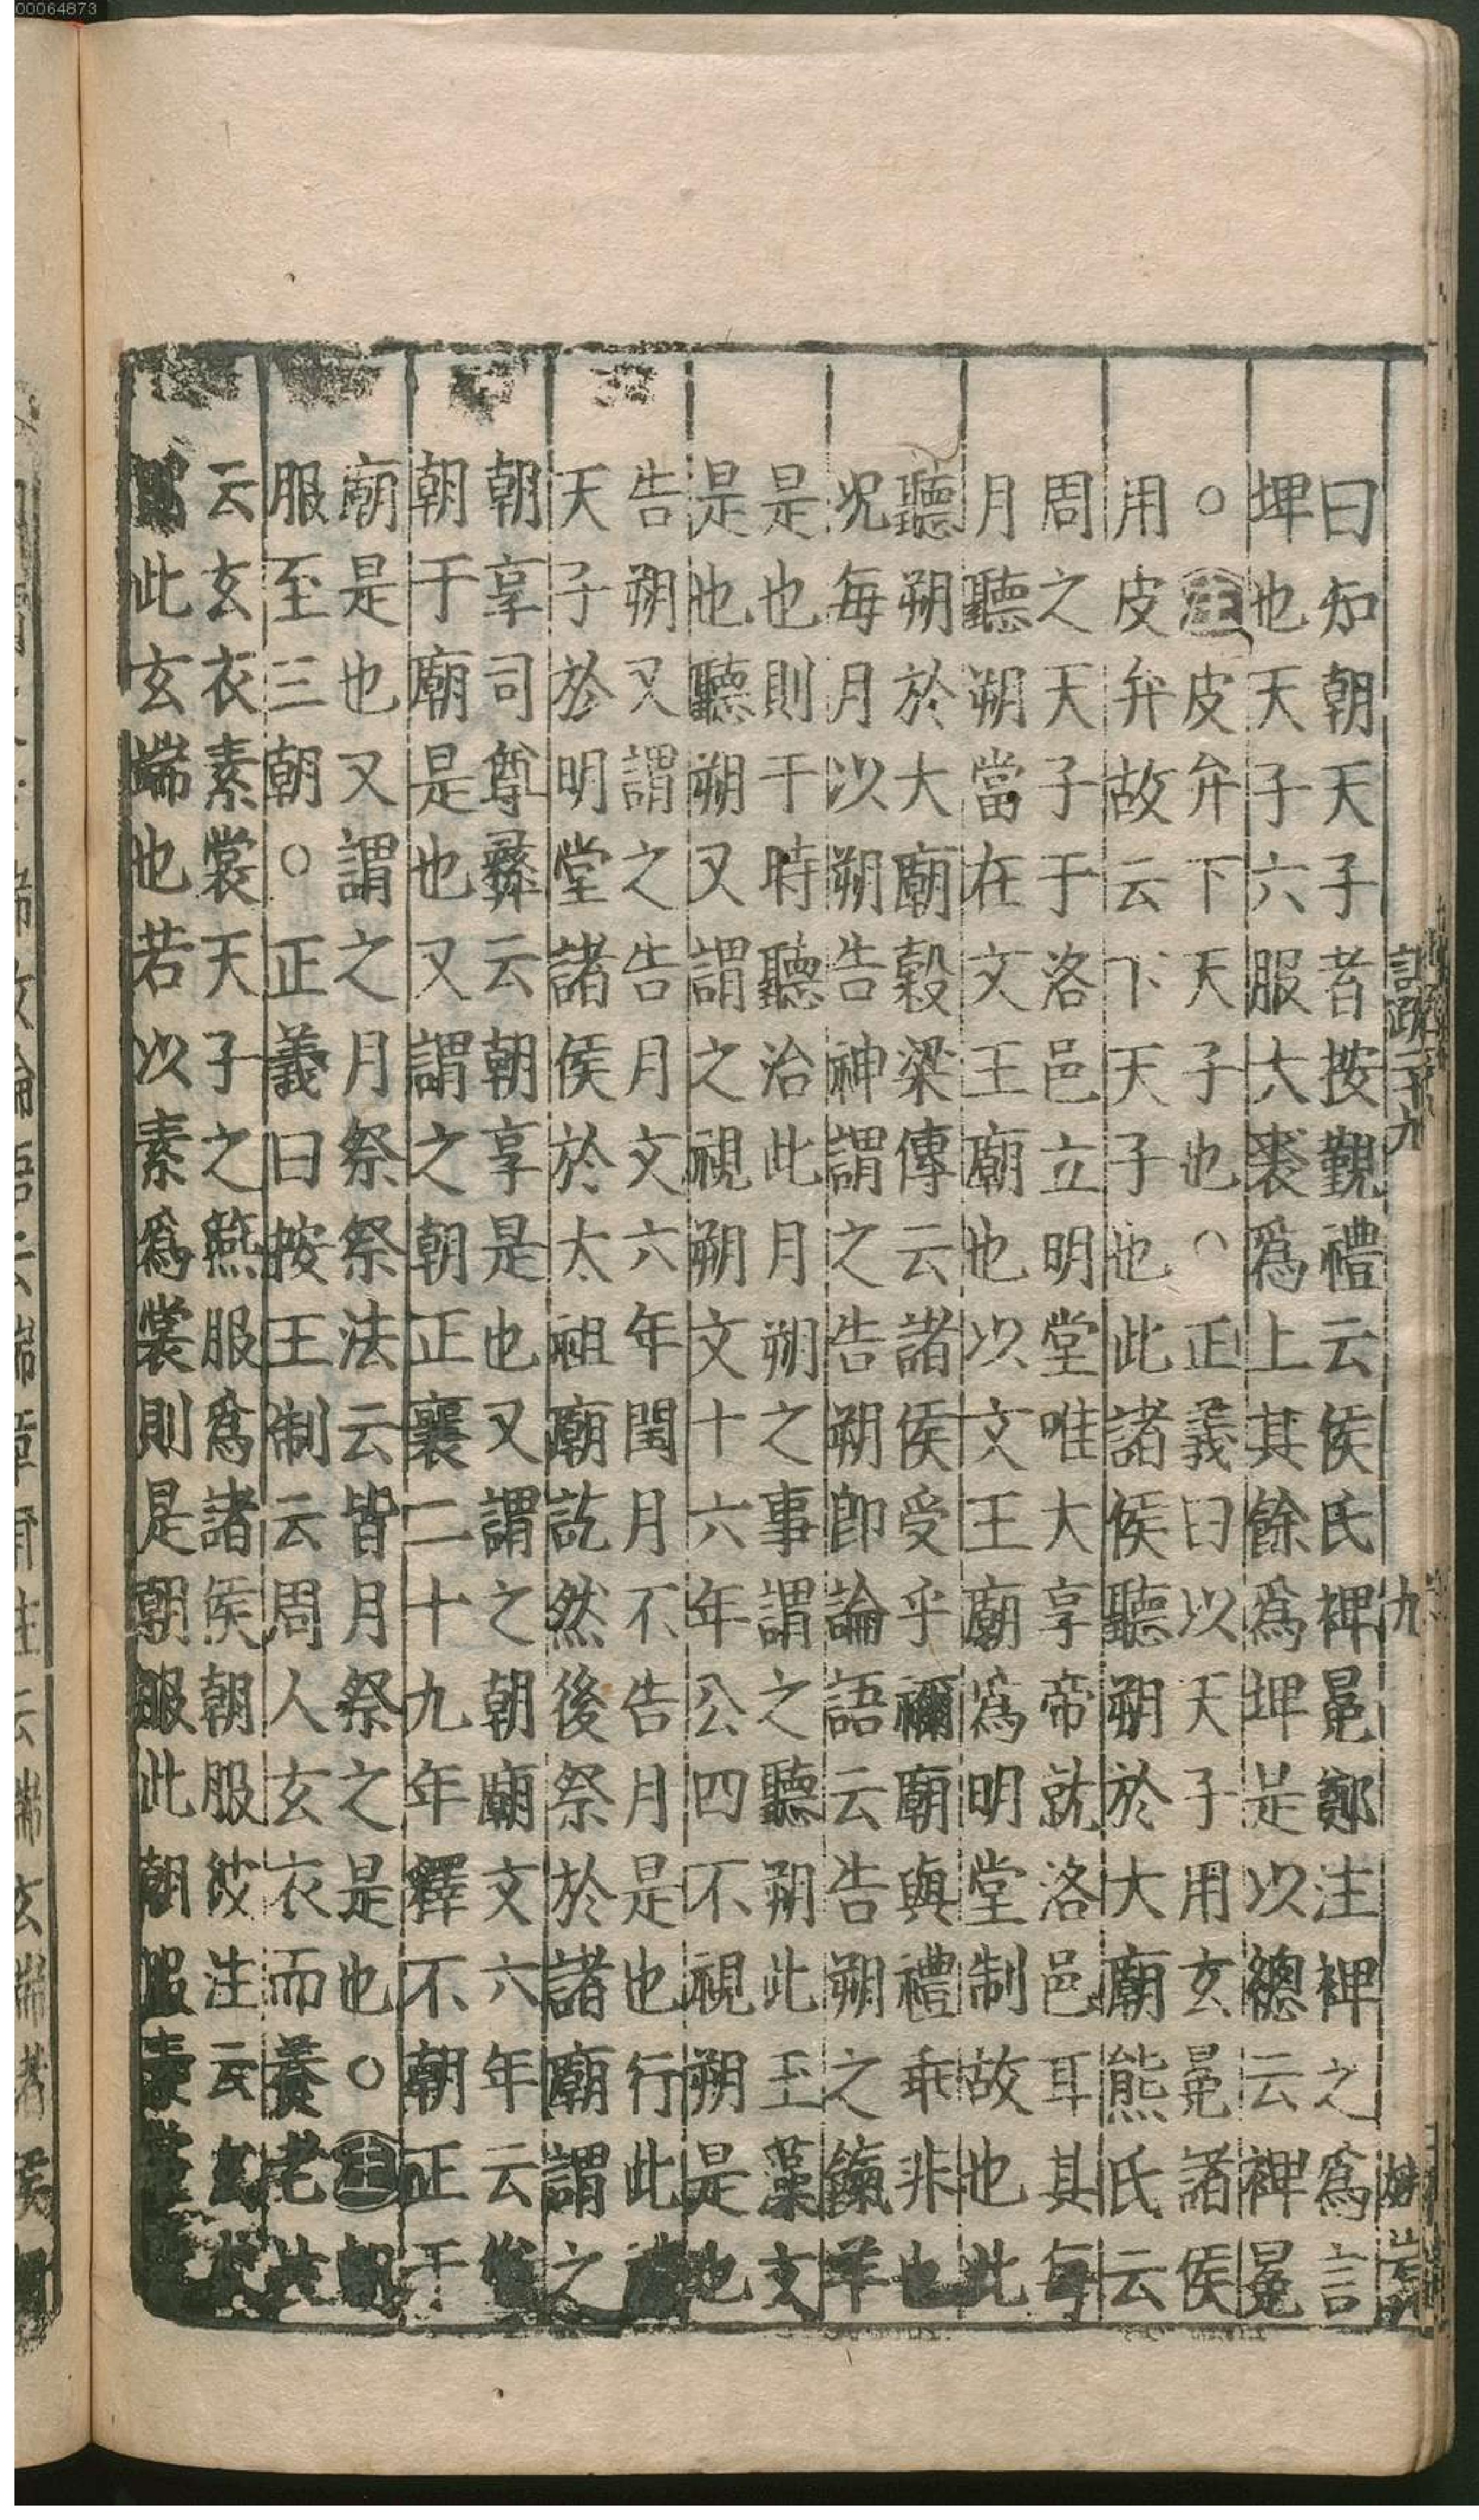 00064873
曰知朝天子者按覲禮云侯氏裨冕鄭注裨之爲言
埤也天子六服大裘爲上其餘爲埤是以緫云裨冕
○注皮弁下天子也○正義曰以天子用玄冕諸侯
用皮弁故云下天子也此諸侯聽朔於大廟熊氏云
周之天子于洛邑立明堂唯大享帝就洛邑耳其每
月聽朔當在文王廟也以文王廟爲明堂制故也此
聽朔於大廟穀梁傳云諸侯受乎禰廟與禮乖非也
况每月以朔告神謂之告朔卽論語云告朔之餼羊
是也則于時聽治此月朔之事謂之聽朔此玉藻文
是也聽朔又謂之視朔文十六年公四不視朔是也
告朔又謂之告月文六年閏月不告月是也行此禮
天子於明堂諸侯於太祖廟訖然後祭於諸廟謂之
朝享司尊彝云朝享是也又謂之朝廟文六年云猶
朝于廟是也又謂之朝正襄二十九年釋不朝正于
廟是也又謂之月祭祭法云皆月祭之是也○注朝
服至三朝○正義曰按王制云周人玄衣而養老
云玄衣素裳天子之燕服爲諸侯朝服彼注云玄
此玄端也若以素爲裳則是朝服此朝服素
言疏二十九
九